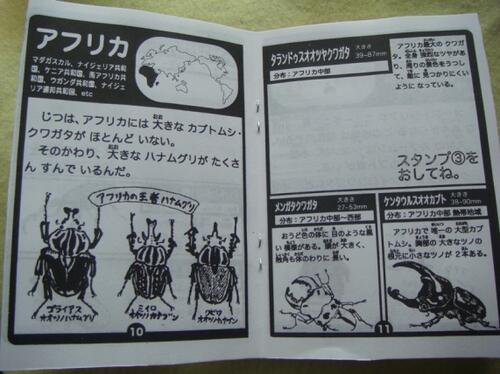 アフリカ
マダガスカル、ナイジェリア共和
国、ケニア共和国、南アフリカ共
和国、ウガンダ共和国、ナイジェ
リア連邦共和国、etc
じつは、アフリカには 大きな カブトムシ・
クワガタが ほとんど いない。
そのかわり、大きな ハナムグリが たくさ
ん すんで いるんだ。
アフリカの王者ハナムグリ
ゴライアス
オオツノハナムグリ
ミイロ
オオツノカナブン
10
タランドゥスオオツヤクワガタ
大きさ
39~87mm
分布：アフリカ中部
アフリカ最大の クワガ
タ。全身 強烈なツヤがあ
り、周りの景色をうつし
て、敵に 見つかりにくい
ように なっている。
スタンプ③を
おしてね。
メンガタクワガタ
大きさ
27~53mm
分布：アフリカ中部~西部
おうど色の体に 目のような黒
い 模様がある。頭が 大きく、
触角も体のわりに 長い。
ケンタウルスオオカブト
大きさ
38~90mm
分布：アフリカ中部 熱帯地域
アフリカで 唯一の 大型カブ
トムシ。胸部の 大きなツノの
根元に小さなツノが 2本ある。
11